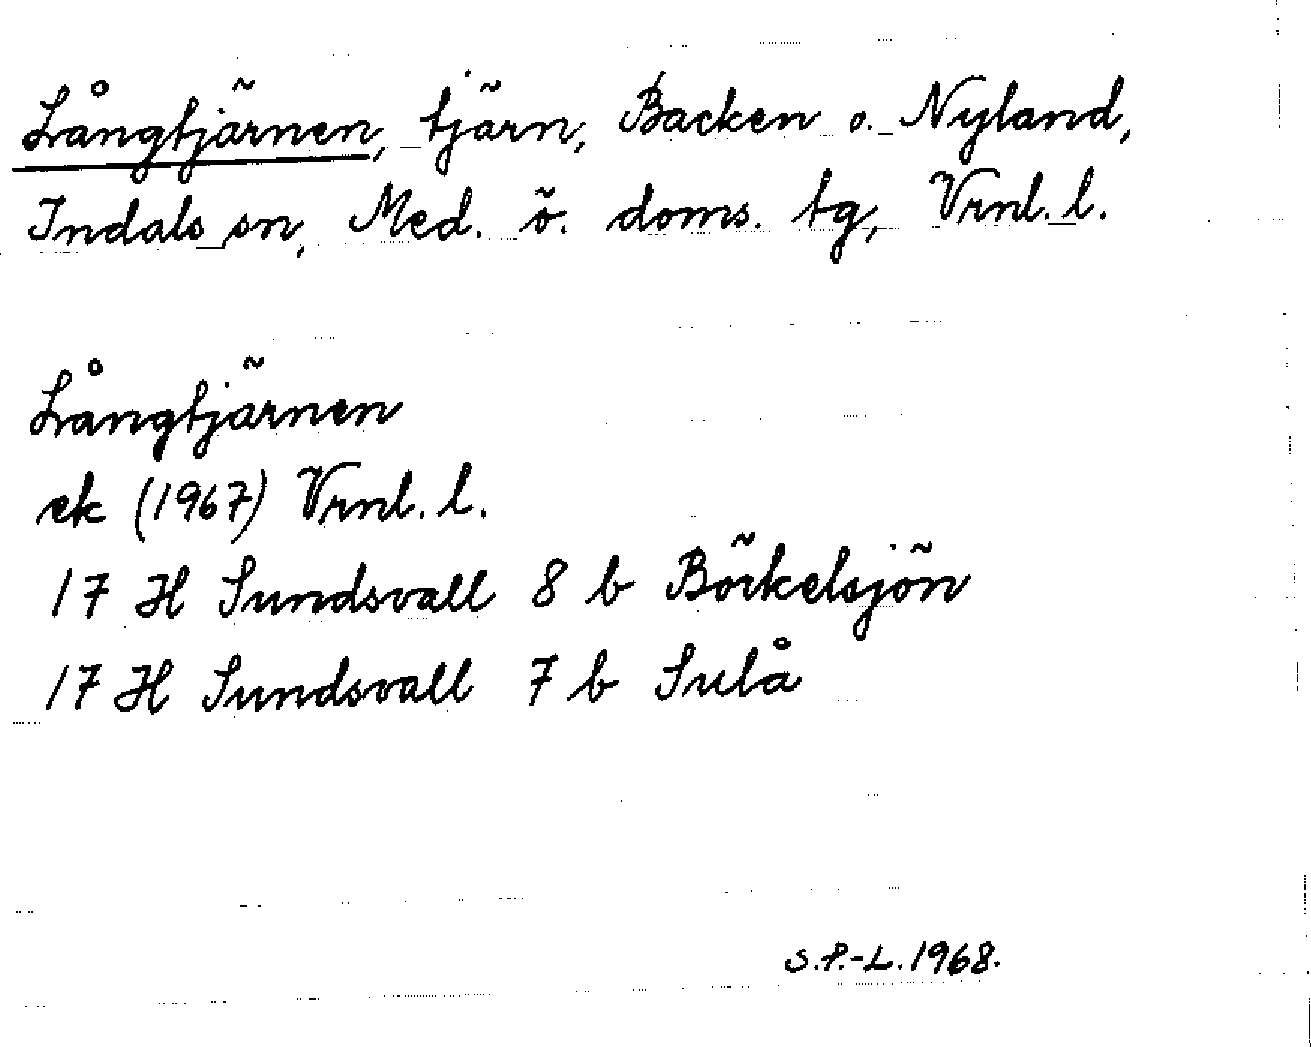 Långtjärnen, tjärn, Backen o. Nyland,
Indals sn, Med. ö. doms. tg, Vrnl. l.
Långtjärnen
ek (1967) Vrnl. l.
17 H Sundsvall 8 b Börkelsjön
17 H Sundsvall 7 b Sulå
S.P.-L. 1968.